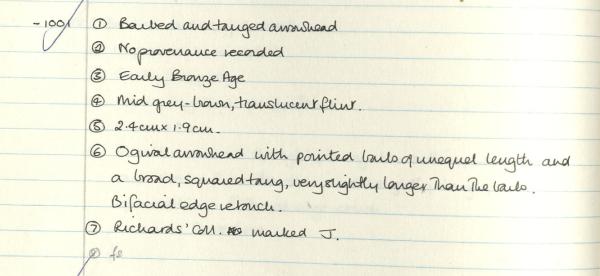 -1001 ① Barbed and tanged arrowhead
② No provenance recorded
③ Early Bronze Age
④ Mid grey-brown, translucent flint.
⑤ 2.4cm x 1.9cm.
⑥ Ogival arrowhead with pointed barbs of unequal length and
a broad, squared tang, very slightly longer than the barbs.
Bifacial edge retouch.
⑦ Richards' Coll. marked J.
⑧